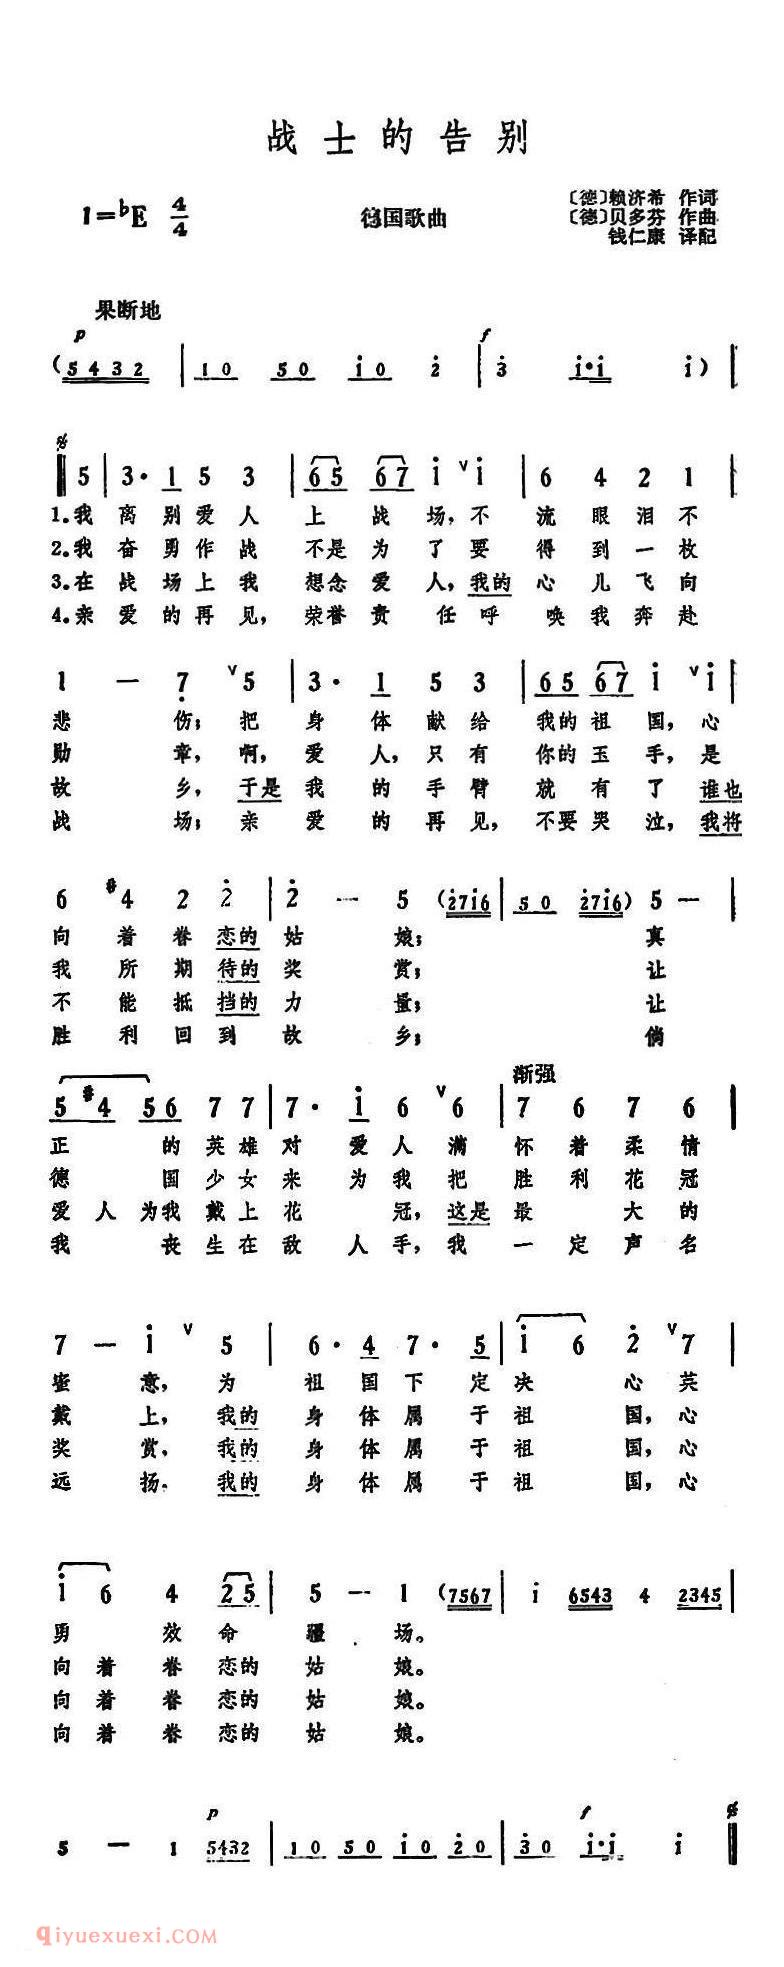 战士的告别
〔德〕赖济希 作词
1=♭E 4/4 德国歌曲 〔德〕贝多芬 作曲
钱仁康 译配
果断地
p f
(5432 | 10 50 i0 2 | 3 i·i i) |
5 | 3· 1 5 3 | 65 67 i ∨ i | 6 4 2 1
1.我 离 别 爱 人 上 战 场，不 流 眼 泪 不
2.我 奋 勇 作 战 不是 为 了 要 得 到 一 枚
3.在 战 场 上 我 想念 爱 人，我的 心 儿 飞 向
4.亲 爱 的 再 见，荣誉 责 任 呼 唤 我 奔 赴
1 — 7 ∨ 5 | 3· 1 5 3 | 65 67 i ∨ i |
悲 伤；把 身 体 献 给 我的 祖 国，心
勋 章，啊，爱 人，只 有 你的 玉 手，是
故 乡，于是 我 的 手 臂 就 有 了 谁也
战 场；亲 爱 的 再 见，不要 哭 泣，我将
6 #4 2 2 | 2 — 5 (2716 | 50 2716) 5 — |
向 着 眷 恋的 姑 娘； 真
我 所 期 待的 奖 赏； 让
不 能 抵 挡的 力 量； 让
胜 利 回 到 故 乡； 倘
渐强
5 #4 56 7 7 | 7· i 6 ∨ 6 | 7 6 7 6 |
正 的 英 雄 对 爱 人 满 怀 着 柔 情
德 国 少 女 来 为 我 把 胜 利 花 冠
爱 人 为我 戴 上 花 冠，这是 最 大 的
我 丧 生 在 敌 人 手，我 一 定 声 名
7 — i ∨ 5 | 6· 4 7· 5 | i 6 2 ∨ 7 |
蜜 意，为 祖 国 下 定 决 心 英
戴 上，我的 身 体 属 于 祖 国，心
奖 赏，我的 身 体 属 于 祖 国，心
远 扬．我的 身 体 属 于 祖 国，心
i 6 4 25 | 5 — 1 (7567 | i 6543 4 2345 |
勇 效 命 疆 场。
向 着 眷 恋的 姑 娘。
向 着 眷 恋的 姑 娘。
向 着 眷 恋的 姑 娘。
p f
5 — 1 5432 | 10 50 i0 20 | 30 i·i i
qiyuexuexi.com